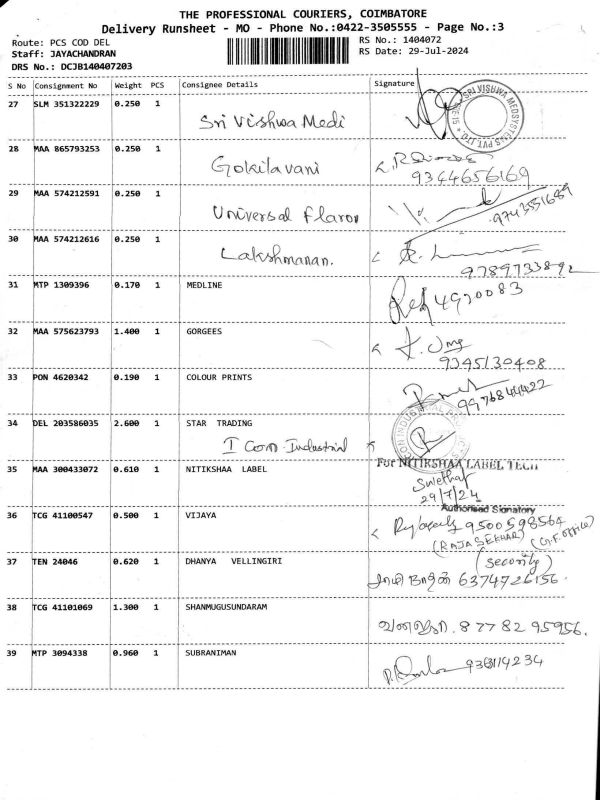 THE PROFESSIONAL COURIERS, COIMBATORE
Delivery Runsheet - MO - Phone No.:0422-3505555 - Page No.:3
Route: PCS COD DEL RS No.: 1404072
Staff: JAYACHANDRAN RS Date: 29-Jul-2024
DRS No.: DCJB140407203
S No Consignment No Weight PCS Consignee Details Signature
27 SLM 351322229 0.250 1
Sri Vishwa Medi
SRI VISHWA MEDSYSTEMS PVT. LTD.
28 MAA 865793253 0.250 1
Gokilavani
9344656169
29 MAA 574212591 0.250 1
Universal Flavor
9743551689
30 MAA 574212616 0.250 1
Lakshmanan.
9789733892
31 MTP 1309396 0.170 1 MEDLINE
4920083
32 MAA 575623793 1.400 1 GORGEES
9345130408
33 PON 4620342 0.190 1 COLOUR PRINTS
9976844422
34 DEL 203586035 2.600 1 STAR TRADING
I Con Industrial
35 MAA 300433072 0.610 1 NITIKSHAA LABEL
For NITIKSHAA LABEL TECH
Swetha
29/7/24
Authorised Signatory
36 TCG 41100547 0.500 1 VIJAYA
9500598564
(RAJA SEKHAR)
37 TEN 24046 0.620 1 DHANYA VELLINGIRI
(security)
6374726156
38 TCG 41101069 1.300 1 SHANMUGUSUNDARAM
87782 95956.
39 MTP 3094338 0.960 1 SUBRANIMAN